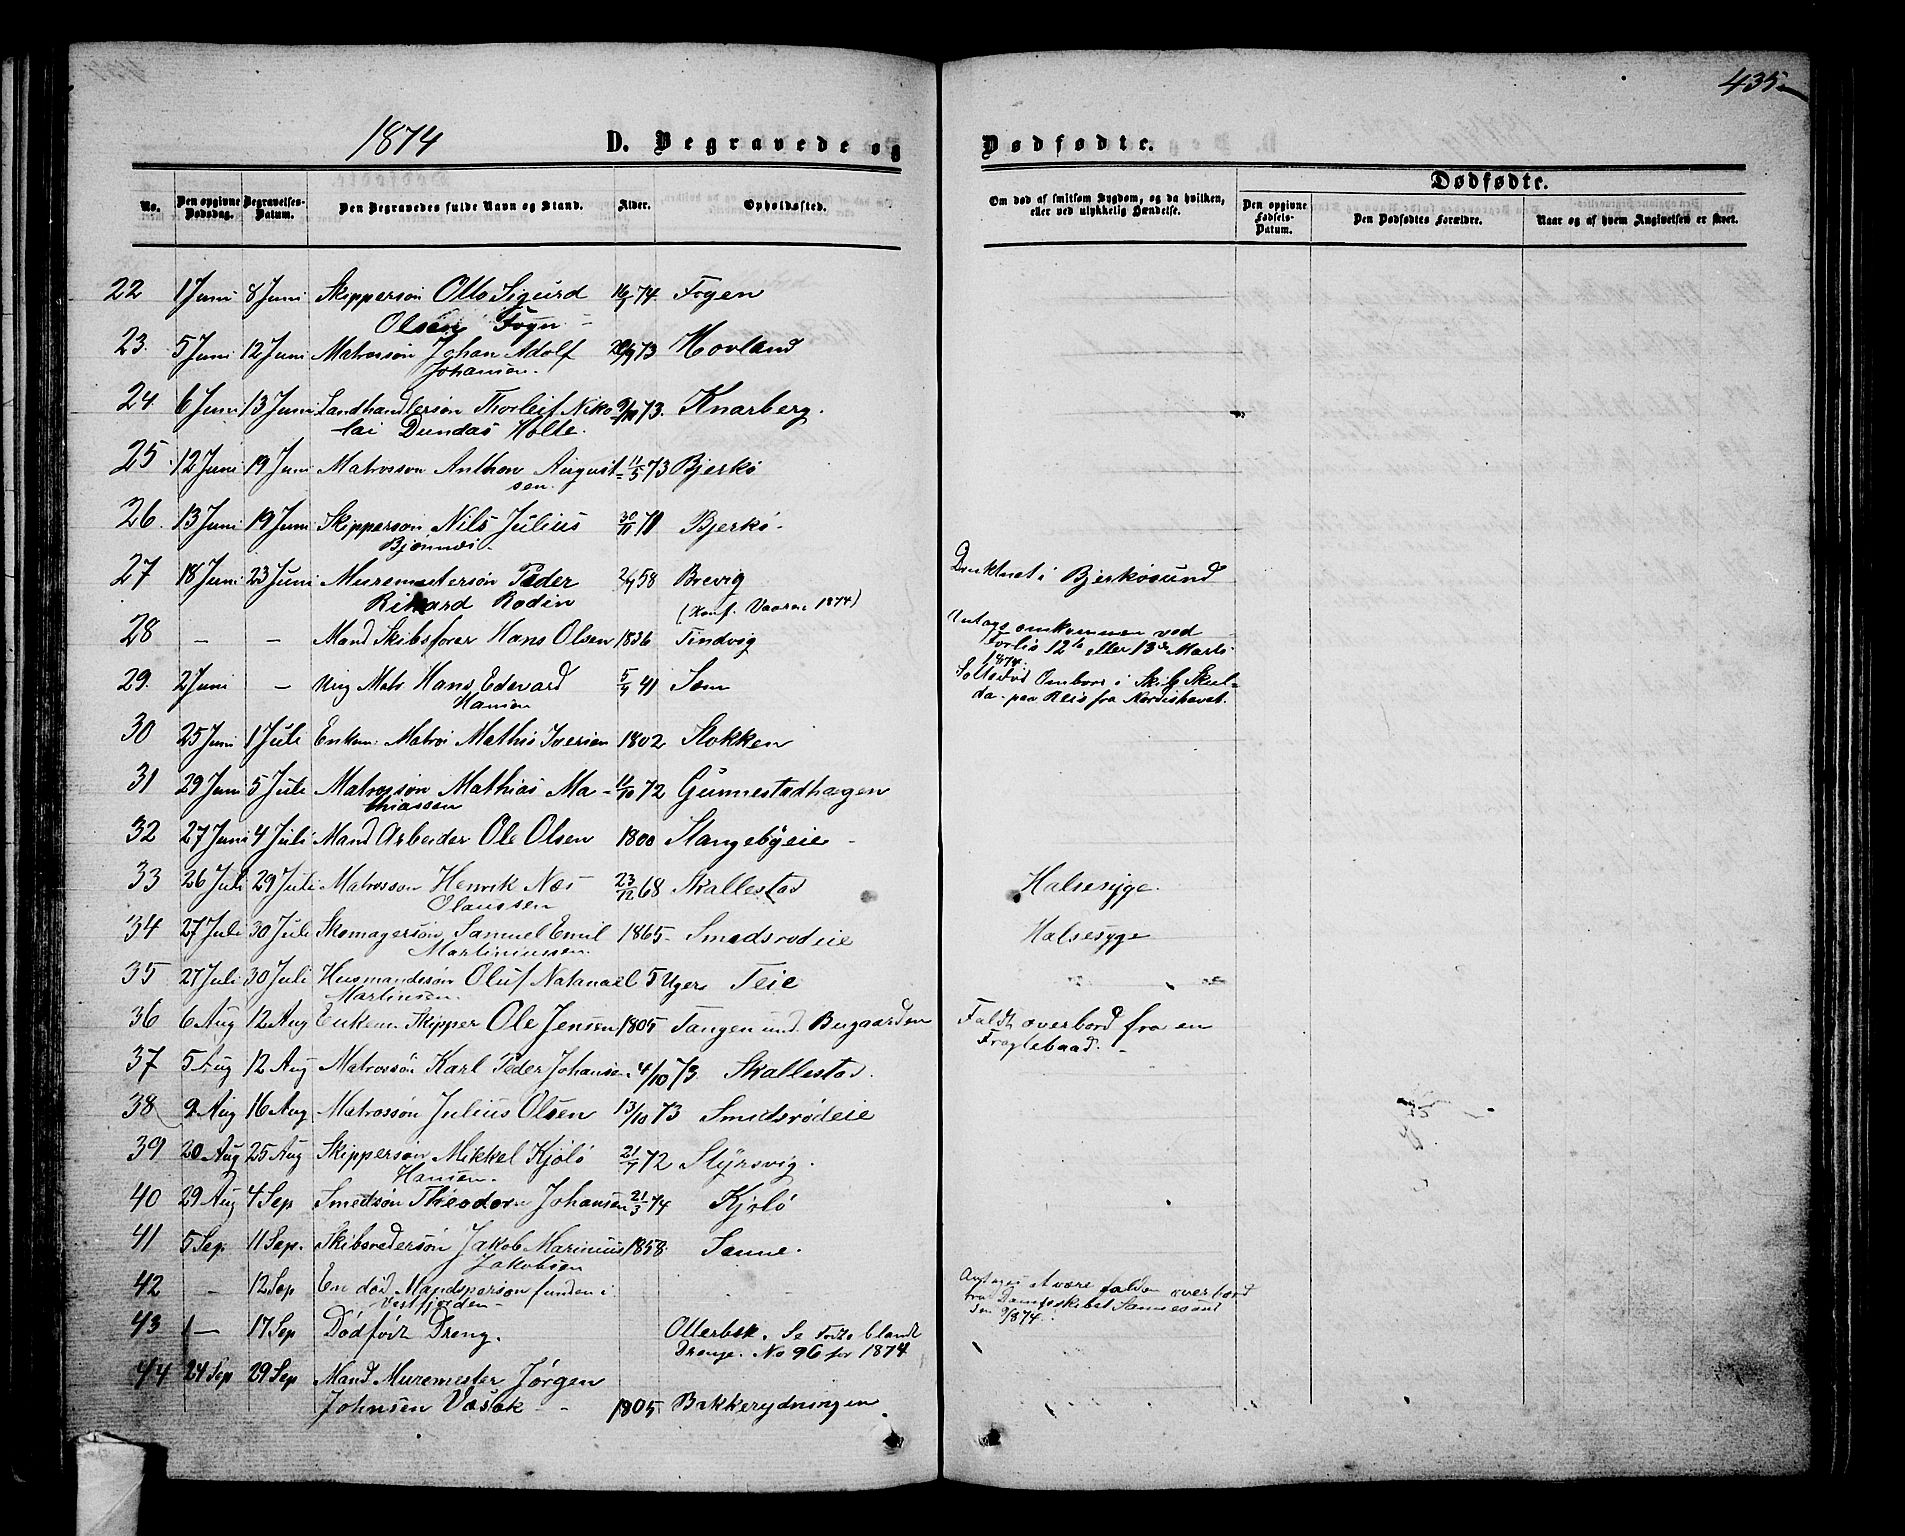 435
1874 D. Begravede og Dødfødte.
No. Den opgivne Dødsdag. Begravelses-Datum. Den Begravedes fulde Navn og Stand. Alder. Opholdssted. Om død af smitsom Sygdom, og da hvilken, eller ved ulykkelig Hændelse. Dødfødte.
Den opgivne Fødsels-Datum. Den Dødfødtes Forældre. Naar og af hvem Angivelsen er skeet.
22 1 Juni 8 Juni Skippersøn Otto Sigurd 74 Fogen
Olsen Fogn
23. 5 Juni 12 Juni Matrossøn Johan Adolf 73 Hovland
Johansen.
24. 6 Juni 13 Juni Landhandlersøn Thorleif Niko 9/10 73. Knarberg.
lai Dundas Holte.
25. 12 Juni 19 Juni Matrossøn Anthon August 11/5 73 Bjerkø
sen.
26. 13 Juni 19 Juni Skippersøn Nils Julius 30/11 71 Bjerkø
Bjønnes
27 18 Juni 23 Juni Muremestersøn Peder 58 Brevig Druknet i Bjerkøsund
Rikard Rodin (Konf. Vaaren 1874)
28 – – Mand Skibsfører Hans Olsen 1836 Tindvig Antages omkommen ved
Forlis 12te eller 13de Marts
1874.
29. 2 Juni – Ung Matr Hans Edevard 41 Sem Ombord i Skib Skul-
Hansen da paa Reis fra Nordishavet.
30 25 Juni 1 Juli Enkem. Matros Mathis Iversen 1802 Stokken
31 29 Juni 5 Juli Matrossøn Mathias Ma- 11/10 72 Gunnestadhagen
thiassen
32 27 Juni 4 Juli Mand Arbeider Ole Olsen 1800 Stangebyeie
33 26 Juli 29 Juli Matrossøn Henrik Næs 23/12 68 Skallestad Halsesyge.
Olaussen
34 27 Juli 30 Juli Skomagersøn Samuel Emil 1865 Smidsrødeie Halsesyge
Martiniussen.
35 27 Juli 30 Juli Husmandssøn Oluf Natanael 5 Uger Teie
Martinsen.
36 6 Aug 12 Aug Enkem. Skipper Ole Jensen 1805 Tangen und. Bugaarden Faldt overbord fra en
Fragtebaad.
37 5 Aug 12 Aug Matrossøn Karl Peder Johansen 4/10 73 Skallestad.
38 9 Aug 16 Aug Matrossøn Julius Olsen 13/10 73 Smidsrødeie
39 20 Aug 25 Aug Skippersøn Mikkel Kjølø 21/7 72 Styrsvig.
Hansen.
40 29 Aug 4 Sep Smedsøn Theodor Johansen 21/3 74 Kjølø
41 5 Sep. 11 Sep. Skibsredersøn Jakob Marinius 1858 Sanne.
Jakobsen
42 – 12 Sep En død Mandsperson funden i Antages at være falden overbord
Vestfjorden fra Dampskibet Sannesund
den 9/8 74.
43 – 17 Sep Dødfødt Dreng. Otterbek. Se Fødte blandt
Drenge. No 96 for 1874
44 24 Sep 29 Sep Mand Muremester Jørgen
Johnsen Vasæk 1805 Bakkerydningen